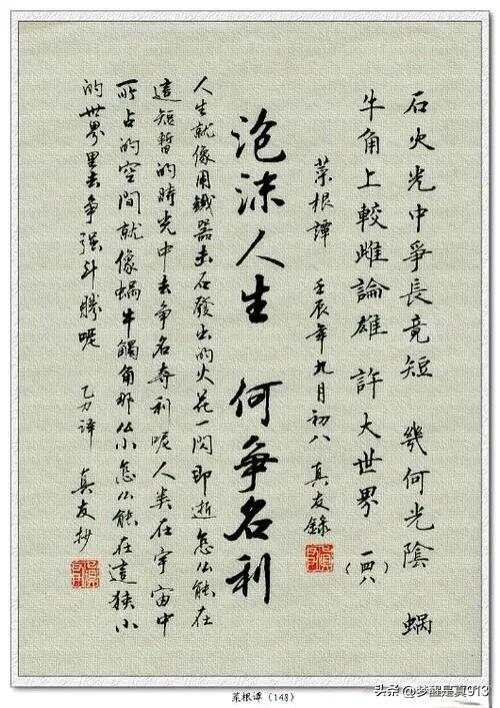 石火光中爭長竟短 幾何光陰 蝸
牛角上較雌論雄 許大世界 （一四八）
菜根譚 壬辰年九月初八 真友錄
泡沫人生 何爭名利
人生就像用鐵器击石發出的火花一閃即逝怎么能在
這短暫的時光中去争名奪利呢人类在宇宙中
所占的空間就像蝸牛觸角那么小怎么能在這狭小
的世界里去争强斗勝呢 乙力译 真友抄
菜根谭（148）
头条 @梦醒是真913